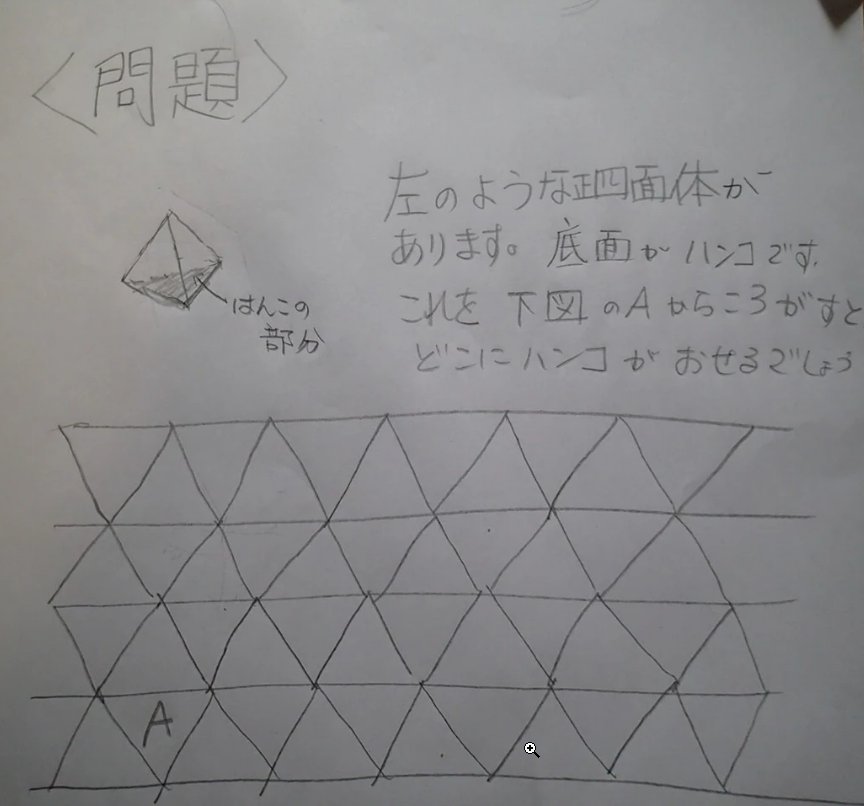 〈問題〉
左のような正四面体が
あります。底面がハンコです。
これを下図のAからころがすと
どこにハンコがおせるでしょう
はんこの
部分
A